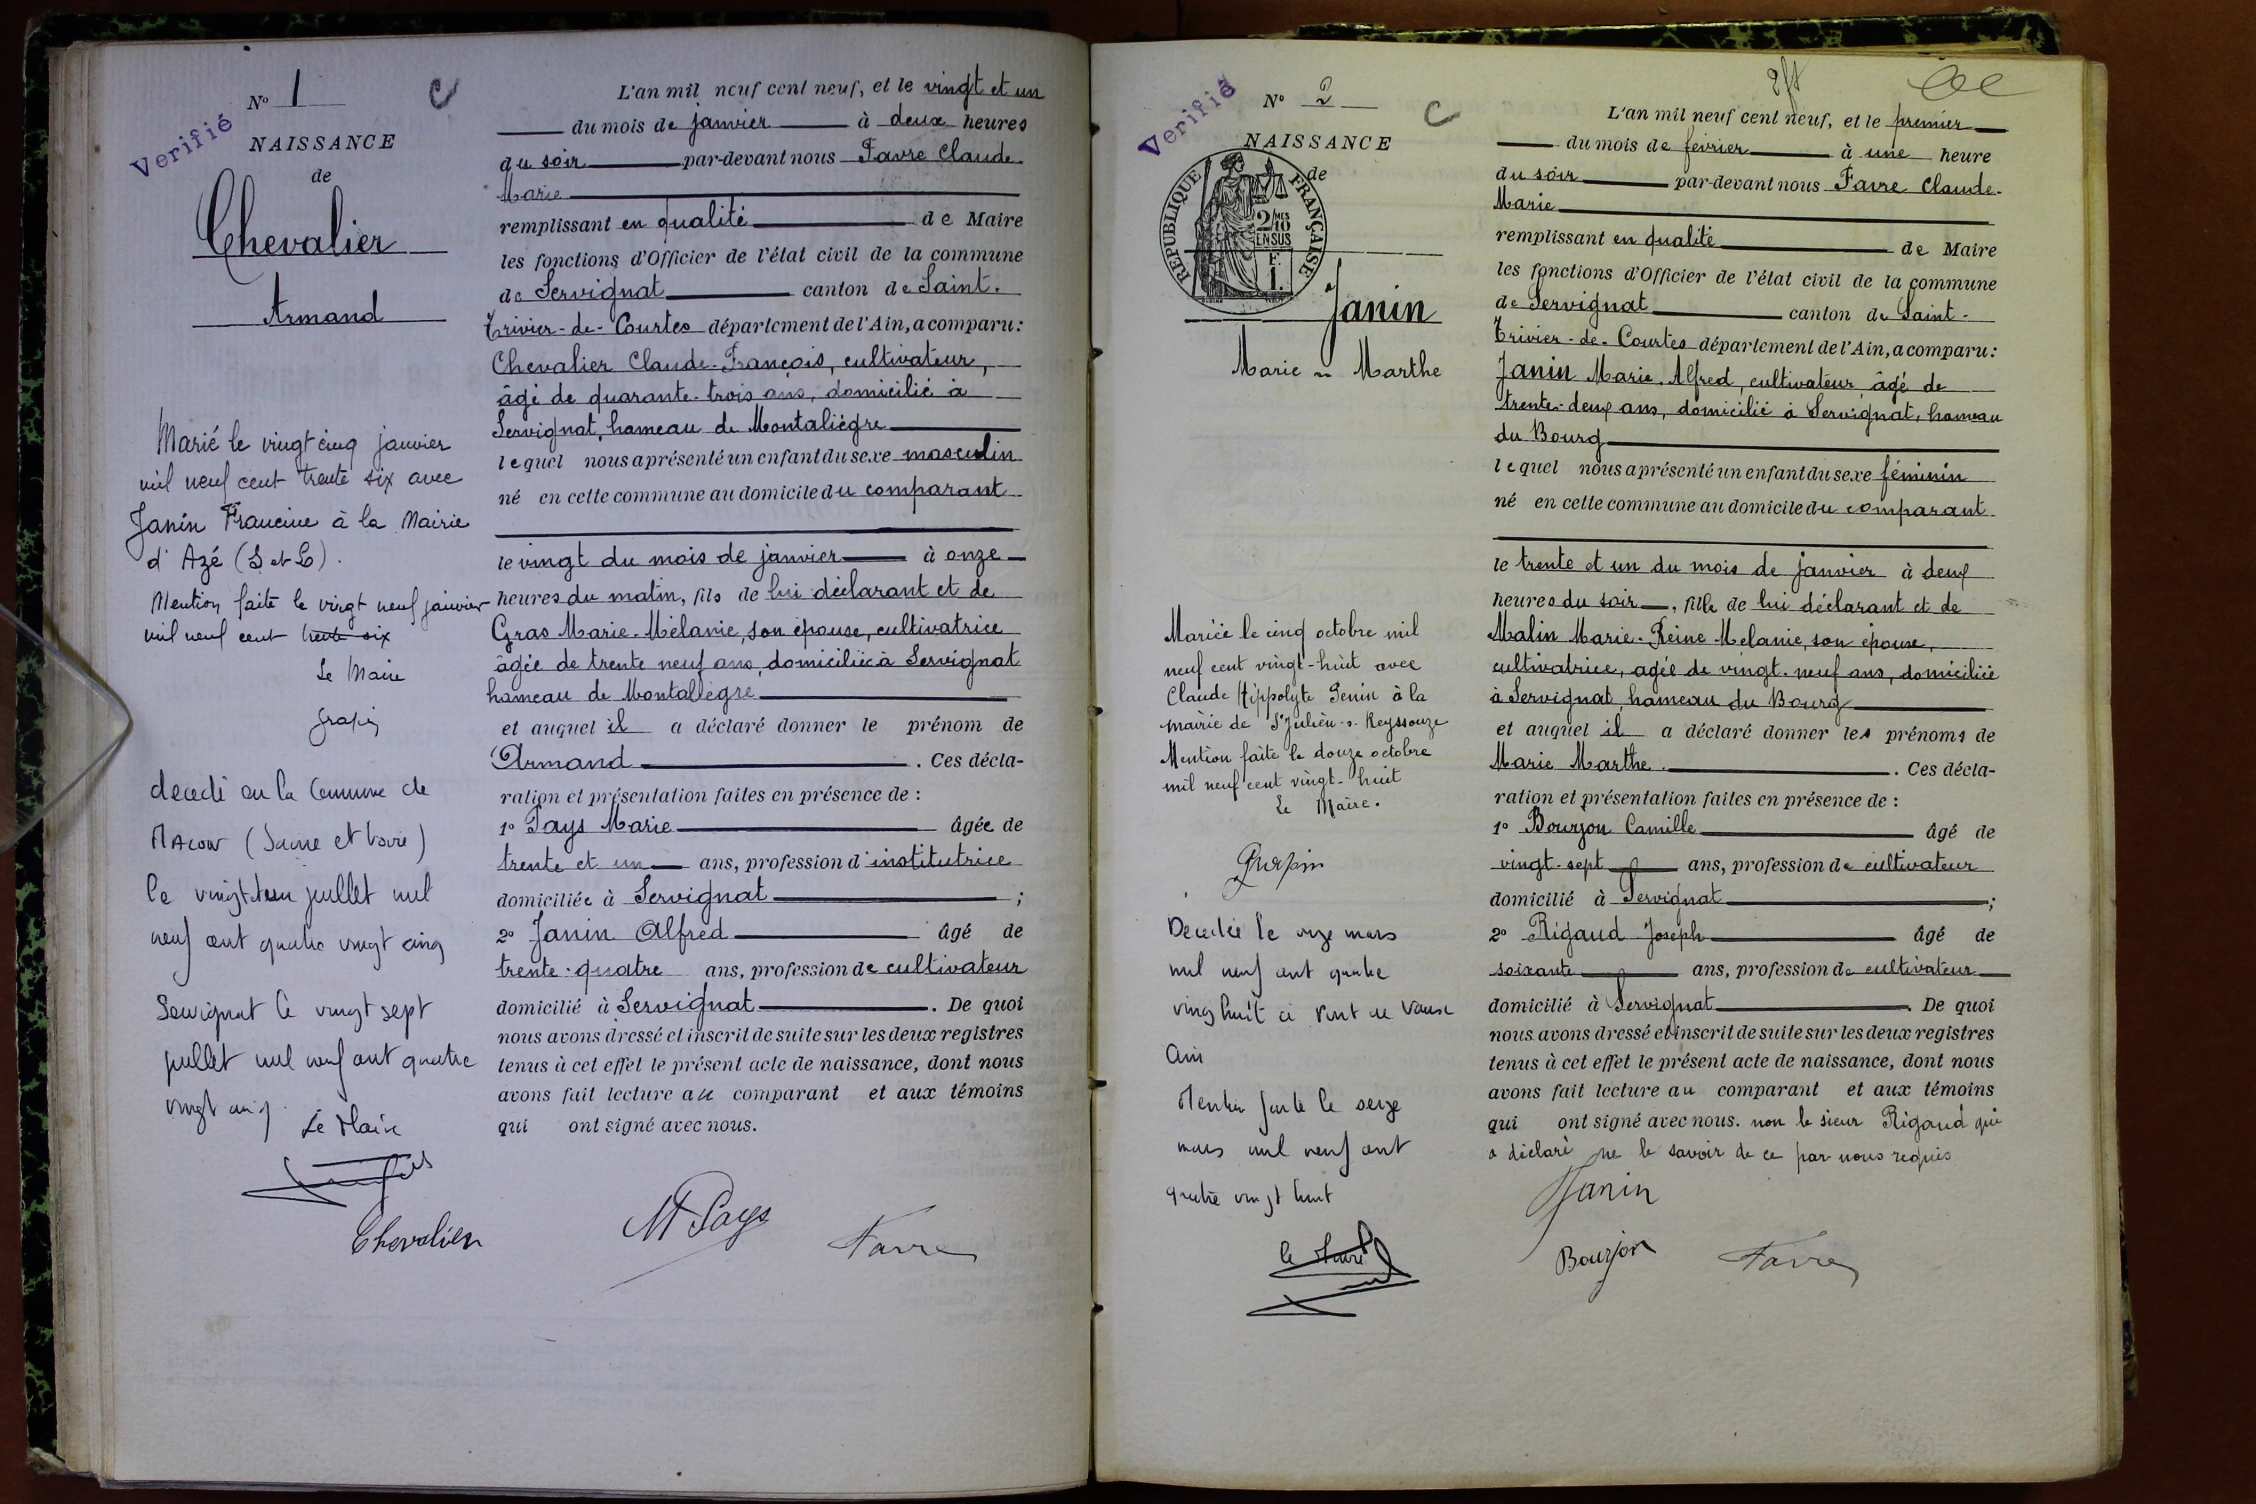 Verifié
N° 1
C
NAISSANCE
de
Chevalier
Armand
Marié le vingt cinq janvier
mil neuf cent trente six avec
Janin Francine à la Mairie
d'Azé (S et L).
Mention faite le vingt neuf janvier
mil neuf cent trente six
Le Maire
décédé en la Commune de
MACON (Saône et Loire)
le juillet mil
neuf cent quatre vingt cinq
Servignat le vingt sept
juillet mil neuf cent quatre
vingt cinq.
Le Maire
L'an mil neuf cent neuf, et le vingt et un
du mois de janvier à deux heures
du soir par-devant nous Favre Claude
Marie
remplissant en qualité de Maire
les fonctions d'Officier de l'état civil de la commune
de Servignat canton de Saint-
Trivier-de-Courtes département de l'Ain, a comparu:
Chevalier Claude-François, cultivateur,
âgé de quarante-trois ans, domicilié à
Servignat, hameau de Montaliègre
lequel nous a présenté un enfant du sexe masculin
né en cette commune au domicile du comparant
le vingt du mois de janvier à onze
heures du matin, fils de lui déclarant et de
Gras Marie-Mélanie, son épouse, cultivatrice
âgée de trente neuf ans, domiciliée à Servignat
hameau de Montallègre
et auquel il a déclaré donner le prénom de
Armand. Ces décla-
ration et présentation faites en présence de :
1° Pays Marie âgée de
trente et un ans, profession d'institutrice
domiciliée à Servignat ;
2° Janin Alfred âgé de
trente-quatre ans, profession de cultivateur
domicilié à Servignat. De quoi
nous avons dressé et inscrit de suite sur les deux registres
tenus à cet effet le présent acte de naissance, dont nous
avons fait lecture au comparant et aux témoins
qui ont signé avec nous.
Chevalier
M Pays
Favre
Verifié
N° 2
C
NAISSANCE
de
REPUBLIQUE FRANÇAISE
2/10 MES
EN SUS
F.
1.
Janin
Marie - Marthe
Mariée le cinq octobre mil
neuf cent vingt-huit avec
Claude Hippolyte Genin à la
mairie de St Julien-s-Reyssouze
Mention faite le douze octobre
mil neuf cent vingt-huit
Le Maire.
Décédée le onze mars
mil neuf cent quatre
vingt huit à Pont de Vaux
Ain
Mention faite le seize
mars mil neuf cent
quatre vingt huit
le Maire
L'an mil neuf cent neuf, et le premier
du mois de février à une heure
du soir par-devant nous Favre Claude-
Marie
remplissant en qualité de Maire
les fonctions d'Officier de l'état civil de la commune
de Servignat canton de Saint-
Trivier-de-Courtes département de l'Ain, a comparu:
Janin Marie-Alfred, cultivateur âgé de
trente-deux ans, domicilié à Servignat, hameau
du Bourg
lequel nous a présenté un enfant du sexe féminin
né en cette commune au domicile du comparant
le trente et un du mois de janvier à deux
heures du soir, fille de lui déclarant et de
Malin Marie-Reine Melanie, son épouse,
cultivatrice, agée de vingt-neuf ans, domiciliée
à Servignat, hameau du Bourg
et auquel il a déclaré donner les prénoms de
Marie Marthe. Ces décla-
ration et présentation faites en présence de :
1° Bourjon Camille âgé de
vingt-sept ans, profession de cultivateur
domicilié à Servignat;
2° Rigaud Joseph âgé de
soixante ans, profession de cultivateur
domicilié à Servignat. De quoi
nous avons dressé et inscrit de suite sur les deux registres
tenus à cet effet le présent acte de naissance, dont nous
avons fait lecture au comparant et aux témoins
qui ont signé avec nous. non le sieur Rigaud qui
a déclaré ne le savoir de ce par nous requis
Janin
Bourjon
Favre